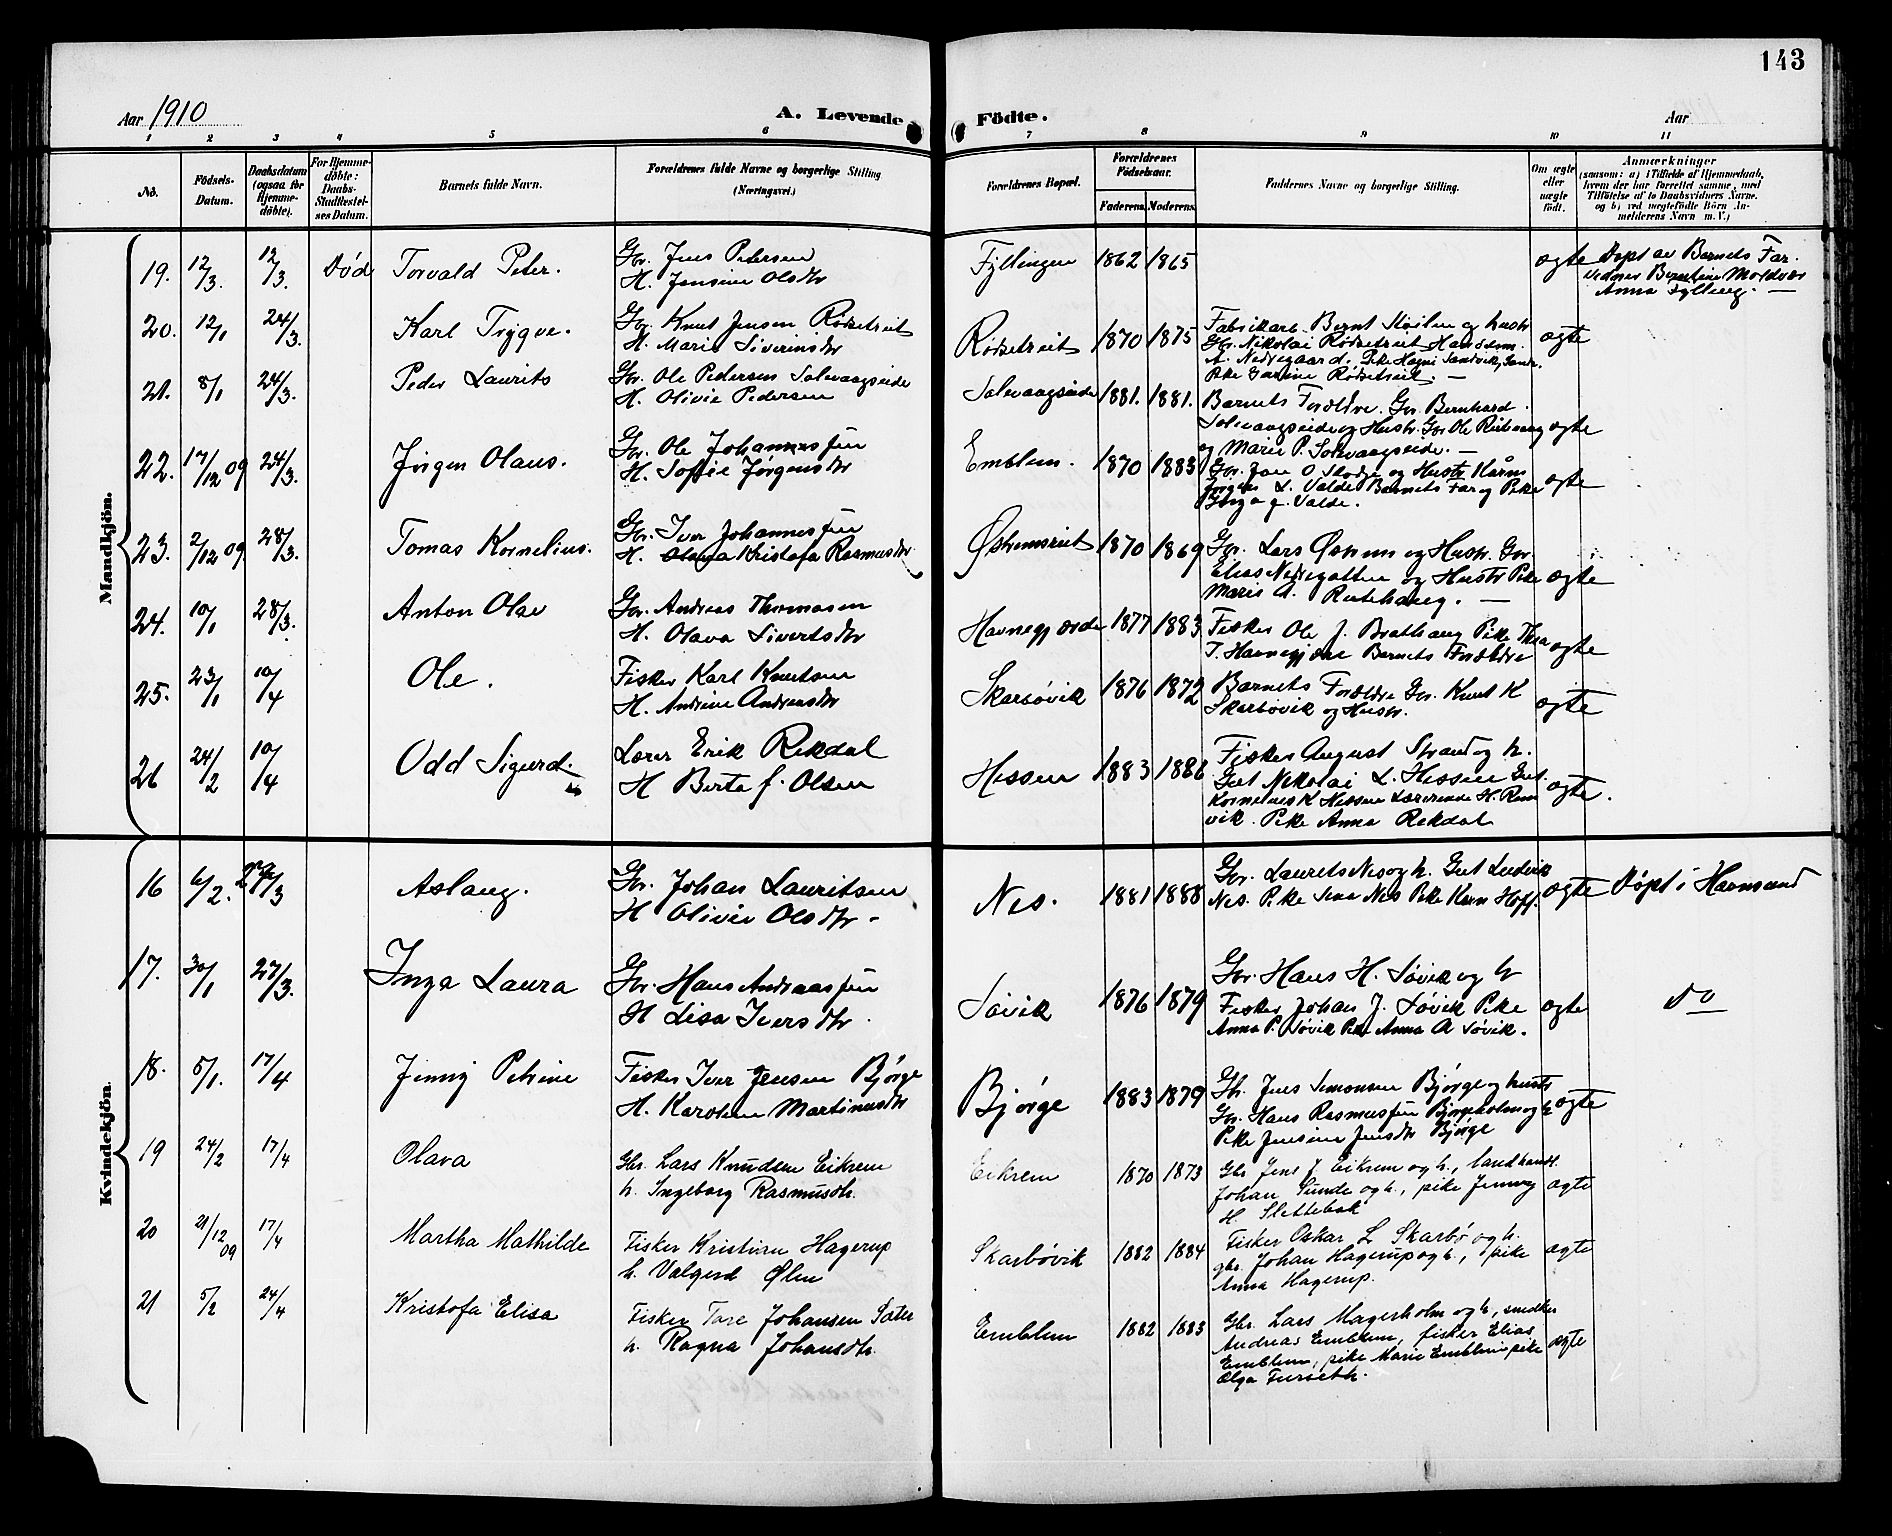 143
Aar 1910
A. Levende
Födte.
Aar
1 2 3 4 5 6 7 8 9 10 11
No.
Födsels-
Datum.
Daabsdatum
(ogsaa for
Hjemme-
döbte).
For Hjemme-
döbte:
Daabs-
Stadfæstel-
ses Datum.
Barnets fulde Navn.
Forældrenes fulde Navne og borgerlige Stilling
(Næringsvei.)
Forældrenes Bopæl.
Forældrenes
Födselsaar.
Faderens. Moderens.
Faddernes Navne og borgerlige Stilling.
Om ægte
eller
uægte
født.
Anmærkninger
(saasom: a) i Tilfælde af Hjemmedaab,
hvem der har forrettet samme, med
Tilföielse af to Daabsvidners Navne.
og b) ved uægtefødte Börn An-
melderens Navn m. V.)
Mandkjön.
19. 12/3. 12/3. Død Torvald Peter.
Gbr. Jens Petersen
H. Jensine Olsdtr
Fyllingen 1862 1865 ægte
Døpt av Barnets Far.
vidner Berntine Moldvær
Anna Fylling. —
20. 12/1 24/3. Karl Trygve.
Gbr. Knut Jensen Rödsetreit
H. Marie Siverinsdtr
Rödsetreit 1870 1875
Fabrikarb. Bernt Støilen og hustr
Gbr. Nikolai Rödsetreit
A. Nedregaard. Pike Hagni Sandvik,
Pike Rödsetreit. —
ægte
21. 8/1 24/3. Peder Laurits
Gbr. Ole Pedersen Solevaagseide
H. Olivie Pedersen
Solevaagseide 1881. 1881.
Barnets Forældre. Gbr. Bernhard
Solevaagseide og Hustr. Gbr Ole
og Marie P. Solevaagseide. —
ægte
22. 17/12 09 24/3. Jørgen Olaus.
Gbr. Ole Johannessen
H. Sofie Jørgensdtr
Emblem. 1870 1883
Gbr. Jon O Slodge og Hustr
Jørgen L. Valde Barnets Far og Pike
Inga J. Valde.
ægte
23. 2/12 09. 28/3. Tomas Kornelius.
Gbr. Iver Johannessen
H. Kristofa Rasmusdtr
Østremsreit 1870 1869
Gbr. Lars Østrem og Hustr. Gbr.
Elias Nedregotten og Hustr Pike
Marie A. Reitehaug. —
ægte
24. 10/1 28/3. Anton Olav
Gbr. Andreas Thomasen
H. Olava Sivertsdtr
Havnegjærde 1877 1883
Fisker Ole J. Brathaug Pike Thea
T. Havnegjære Barnets Forældre
ægte
25. 23/1 10/4 Ole.
Fisker Karl Knutsen
H. Andrine Andreasdtr
Skarbøvik 1876 1872
Barnets Forældre Gbr. Knut K
Skarbövik og Hustr.
ægte
26 24/2 10/4 Odd Sigurd.
Lærer Erik Rekdal
H Berta f. Olsen
Hessen 1883 1886
Fisker August Strand og h.
Gut Nikolai L. Hessen Gut
Kornelius K Hessen Lærerinde H. Rem
vik. Pike Anna Rekdal
ægte.
Kvindekjön.
16 6/2. 27/3 Aslaug.
Gbr. Johan Lauritsen
H Olivie Olsdtr.
Nes. 1881 1888
Gbr. Laurits Nes og h. Gut Ludvik
Nes. Pike Sina Nes Pike Karn Hoff.
ægte Døpt i Hamsund
17. 30/1 27/3. Inga Laura
Gbr. Hans Andreassen
H Lisa Iversdtr.
Søvik 1876 1879
Gbr. Hans H. Søvik og h
Fisker Johan J. Søvik Pike
Anna P. Søvik Pike Anna A Søvik.
ægte do
18. 5/1. 17/4 Jenny Petrine
Fisker Iver Jensen Bjørge
H. Karoline Martinusdtr
Bjørge 1883 1879
Gbr. Jens Simonsen Bjørge og hustr
Gbr. Hans Rasmussen Bjørgeholm og h
Pike Jensine Jensdtr Bjørge
ægte
19 24/2 17/4 Olava
Gbr. Lars Knudsen Eikrem
h. Ingeborg Rasmusdtr.
Eikrem 1870 1873
Gbr Jens J. Eikrem og h., landhandl.
Johan Sunde og h., pike Jenny
H. Slettebak
ægte
20 21/12 09 17/4 Martha Mathilde
Fisker Kristian Hagerup
h. Valgerd Ølen
Skarbövik 1882 1884
Fisker Oskar L Skarbø og h.
gbr. Johan Hagerup og h., pike
Anna Hagerup.
ægte
21 5/2 24/4 Kristofa Elisa
Fisker Tore Johansen Sæter
h. Ragna Johansdtr.
Emblem 1882 1883
Gbr. Lars Magerholm og h, snedker
Andreas Emblem, fisker Elias
Emblem, pike Marie Emblem pike
Olga Furseth.
ægte